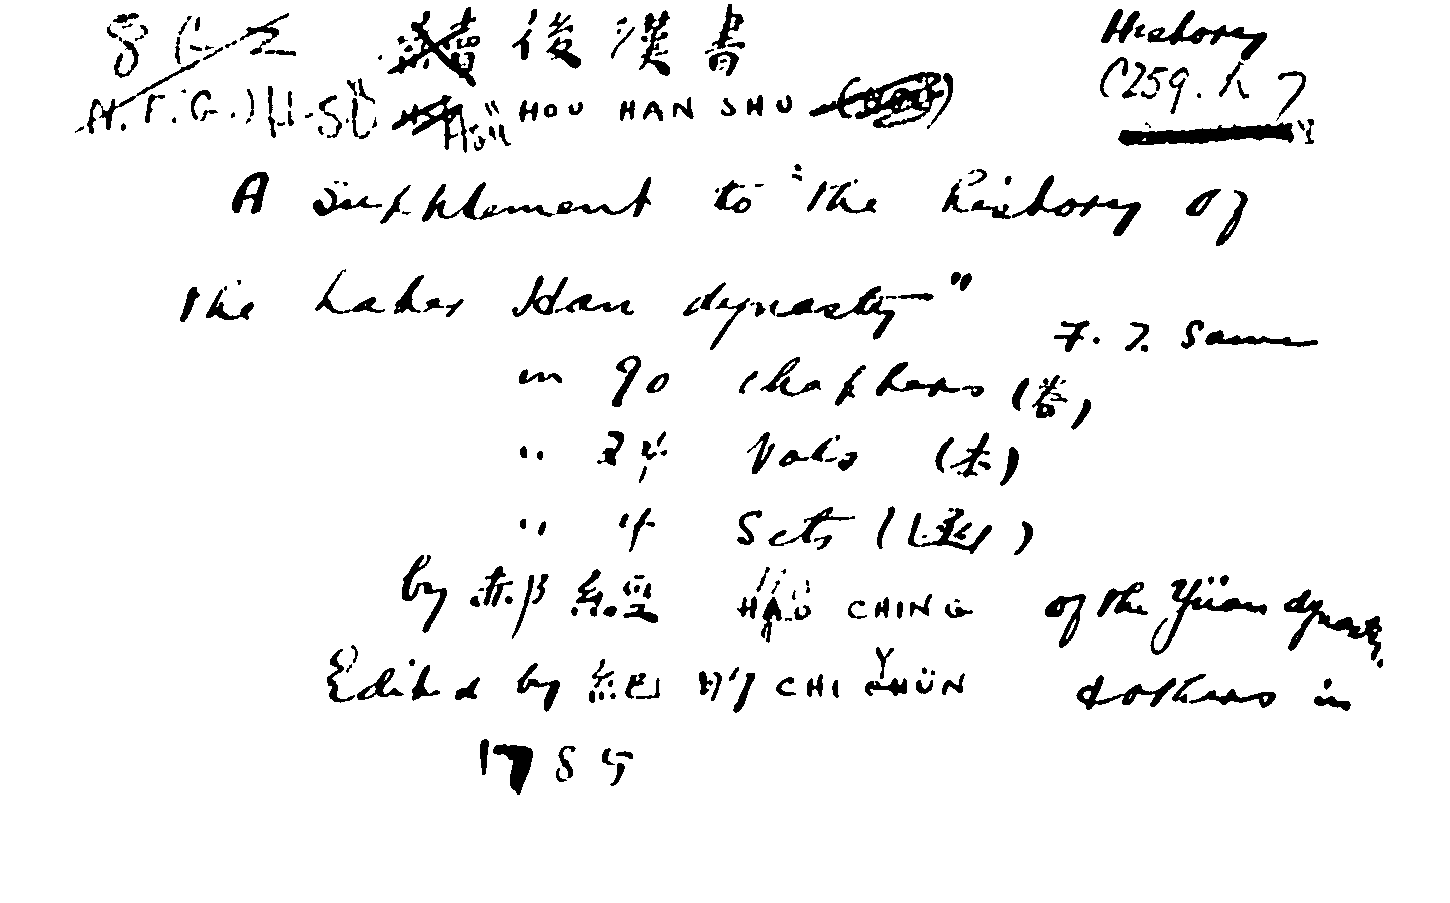 8 C 2 續後漢書 History
HSÜ HOU HAN SHU C259.h 7
A supplement to "the history of
the Later Han dynasty"
F. T. Same
in 90 chapters (卷)
" 24 Vols (本)
" 4 Sets (函)
by 郝經 HAO CHING of the Yüan dynasty
Edited by 紀昀 CHI YÜN & others in
1785